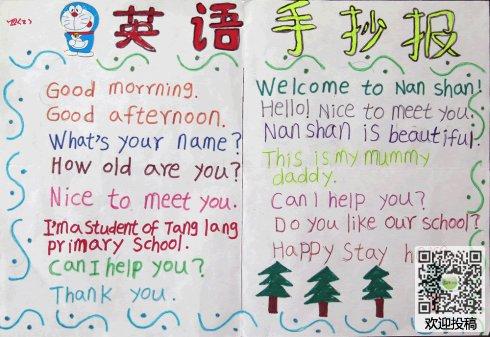 英语手抄报
Good morrning.
Good afternoon.
What's your name?
How old are you?
Nice to meet you.
I'm a student of Tang lang
primary School.
Can I help you?
Thank you.
Welcome to Nan shan!
Hello! Nice to meet you.
Nan shan is beautiful.
This is my mummy
daddy.
Can I help you?
Do you like our school?
Happy Stay
欢迎投稿